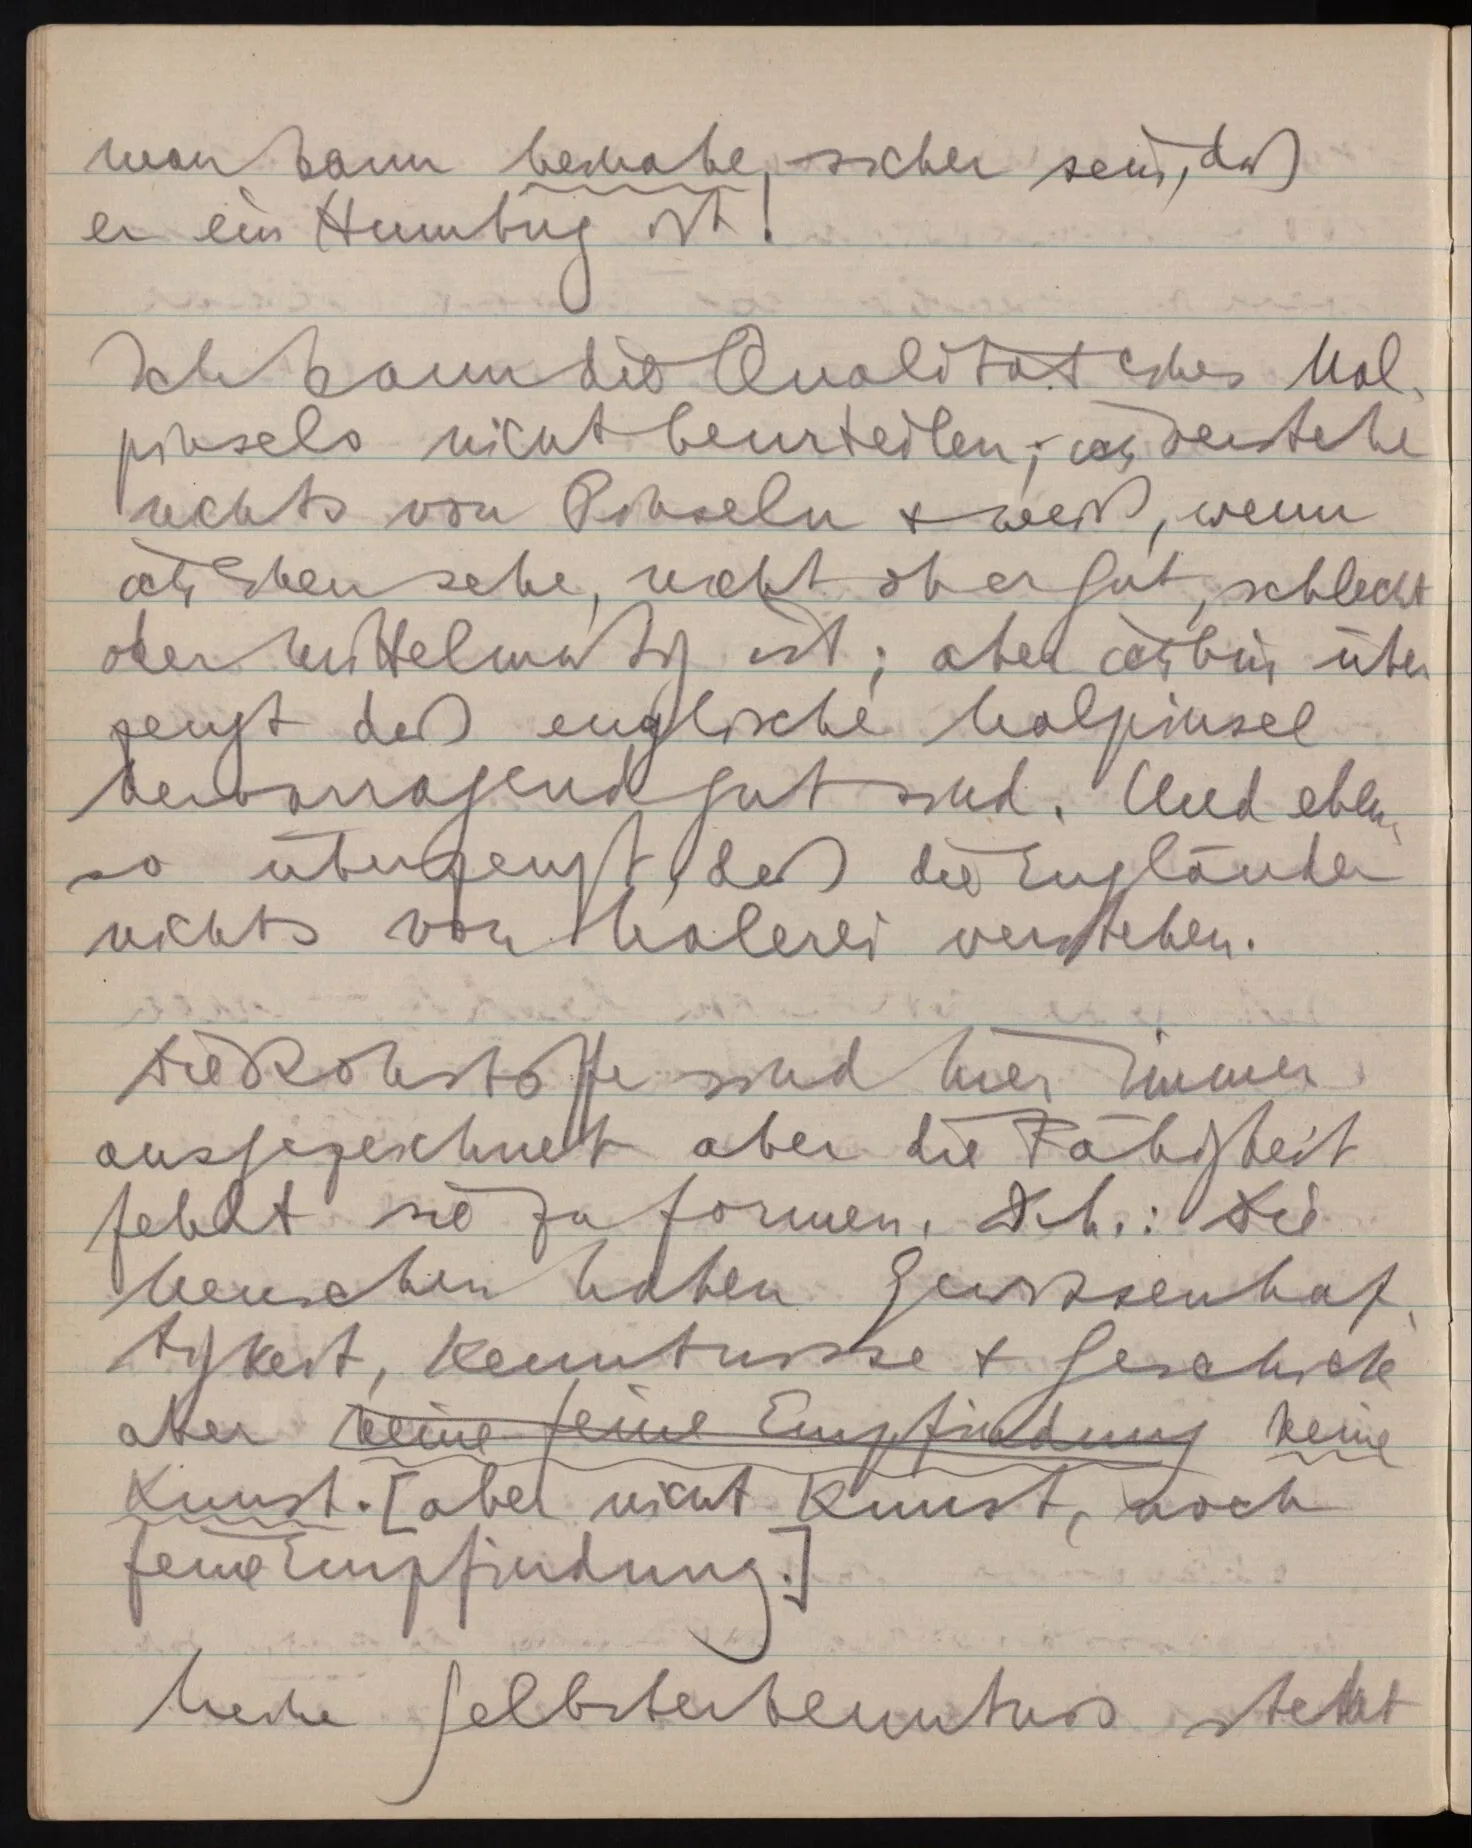 man kann beinahe, sicher sein, daß
er ein Humbug ist!
Ich kann die Qualität eines Mal-
pinsels nicht beurteilen; ich verstehe
nichts von Pinseln + weiß, wenn
ich einen sehe, nicht ob er gut, schlecht
oder mittelmäßig ist; aber ich bin über
zeugt daß englische Malpinsel
hervorragend gut sind. Und eben-
so überzeugt, daß die Engländer
nichts von Malerei verstehen.
Die Rohstoffe sind hier immer
ausgezeichnet aber die Fähigkeit
fehlt sie zu formen. D.h.: Die
Menschen haben Gewissenhaf-
tigkeit, Kenntnisse + Geschick
aber keine feine Empfindung keine
Kunst. [aber nicht Kunst, noch
feine Empfindung.]
Meine Selbsterkenntnis steht